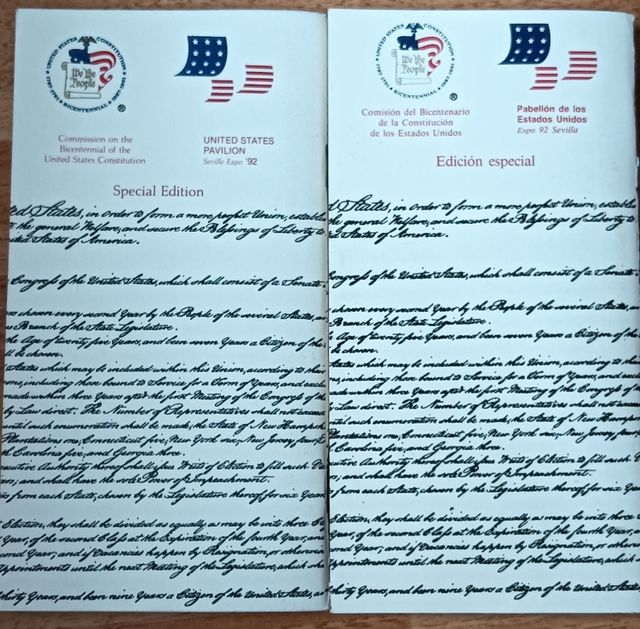 UNITED STATES CONSTITUTION
We the
People
BICENTENNIAL
®
Commission on the
Bicentennial of the
United States Constitution
UNITED STATES
PAVILION
Seville Expo '92
Special Edition
ted States, in Order to form a more perfect Union, establis
the general Welfare, and secure the Blessings of Liberty to
United States of America.
Congress of the United States, which shall consist of a Senate
chosen every second Year by the People of the several States, an
Branch of the State Legislature.
the Age of twenty five Years, and been seven Years a Citizen of the
be chosen.
States which may be included within this Union, according to their
ons, including those bound to Service for a Term of Years, and exclu
made within three Years after the first Meeting of the Congress of the
by Law direct. The Number of Representatives shall not exceed
until such enumeration shall be made, the State of New Hampsh
Plantations one, Connecticut five, New York six, New Jersey four
th Carolina five, and Georgia three.
xecutive Authority thereof shall issue Writs of Election to fill such Va
ers; and shall have the sole Power of Impeachment.
s from each State, chosen by the Legislature thereof, for six Years
Election, they shall be divided as equally as may be into three Cl
Year, of the second Class at the Expiration of the fourth Year, and
cond Year; and if Vacancies happen by Resignation, or otherwise
ppointments until the next Meeting of the Legislature, which shall
thirty Years, and been nine Years a Citizen of the United States, an
UNITED STATES CONSTITUTION
We the
People
BICENTENNIAL
®
Comisión del Bicentenario
de la Constitución
de los Estados Unidos
Pabellón de los
Estados Unidos
Expo 92 Sevilla
Edición especial
d States, in Order to form a more perfect Union, establis
the general Welfare, and secure the Blessings of Liberty to
ed States of America.
ongress of the United States, which shall consist of a Senate
chosen every second Year by the People of the several States,
Branch of the State Legislature.
Age of twenty five Years, and been seven Years a Citizen of the
be chosen.
tates which may be included within this Union, according to the
ns, including those bound to Service for a Term of Years, and exclu
ade within three Years after the first Meeting of the Congress of the
Law direct. The Number of Representatives shall not exceed
ntil such enumeration shall be made, the State of New Hampsh
lantations one, Connecticut five, New York six, New Jersey four
Carolina five, and Georgia three.
cutive Authority thereof shall issue Writs of Election to fill such Va
rs; and shall have the sole Power of Impeachment.
from each State, chosen by the Legislature thereof, for six Years
Election, they shall be divided as equally as may be into three Cl
Year, of the second Class at the Expiration of the fourth Year, and
cond Year; and if Vacancies happen by Resignation, or otherwise
ppointments until the next Meeting of the Legislature, which shall
hirty Years, and been nine Years a Citizen of the United States,